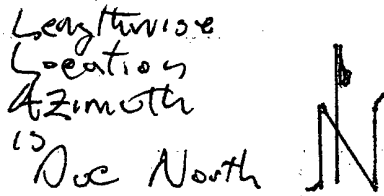 Lengthwise
Location
Azimuth
is
Due North
N